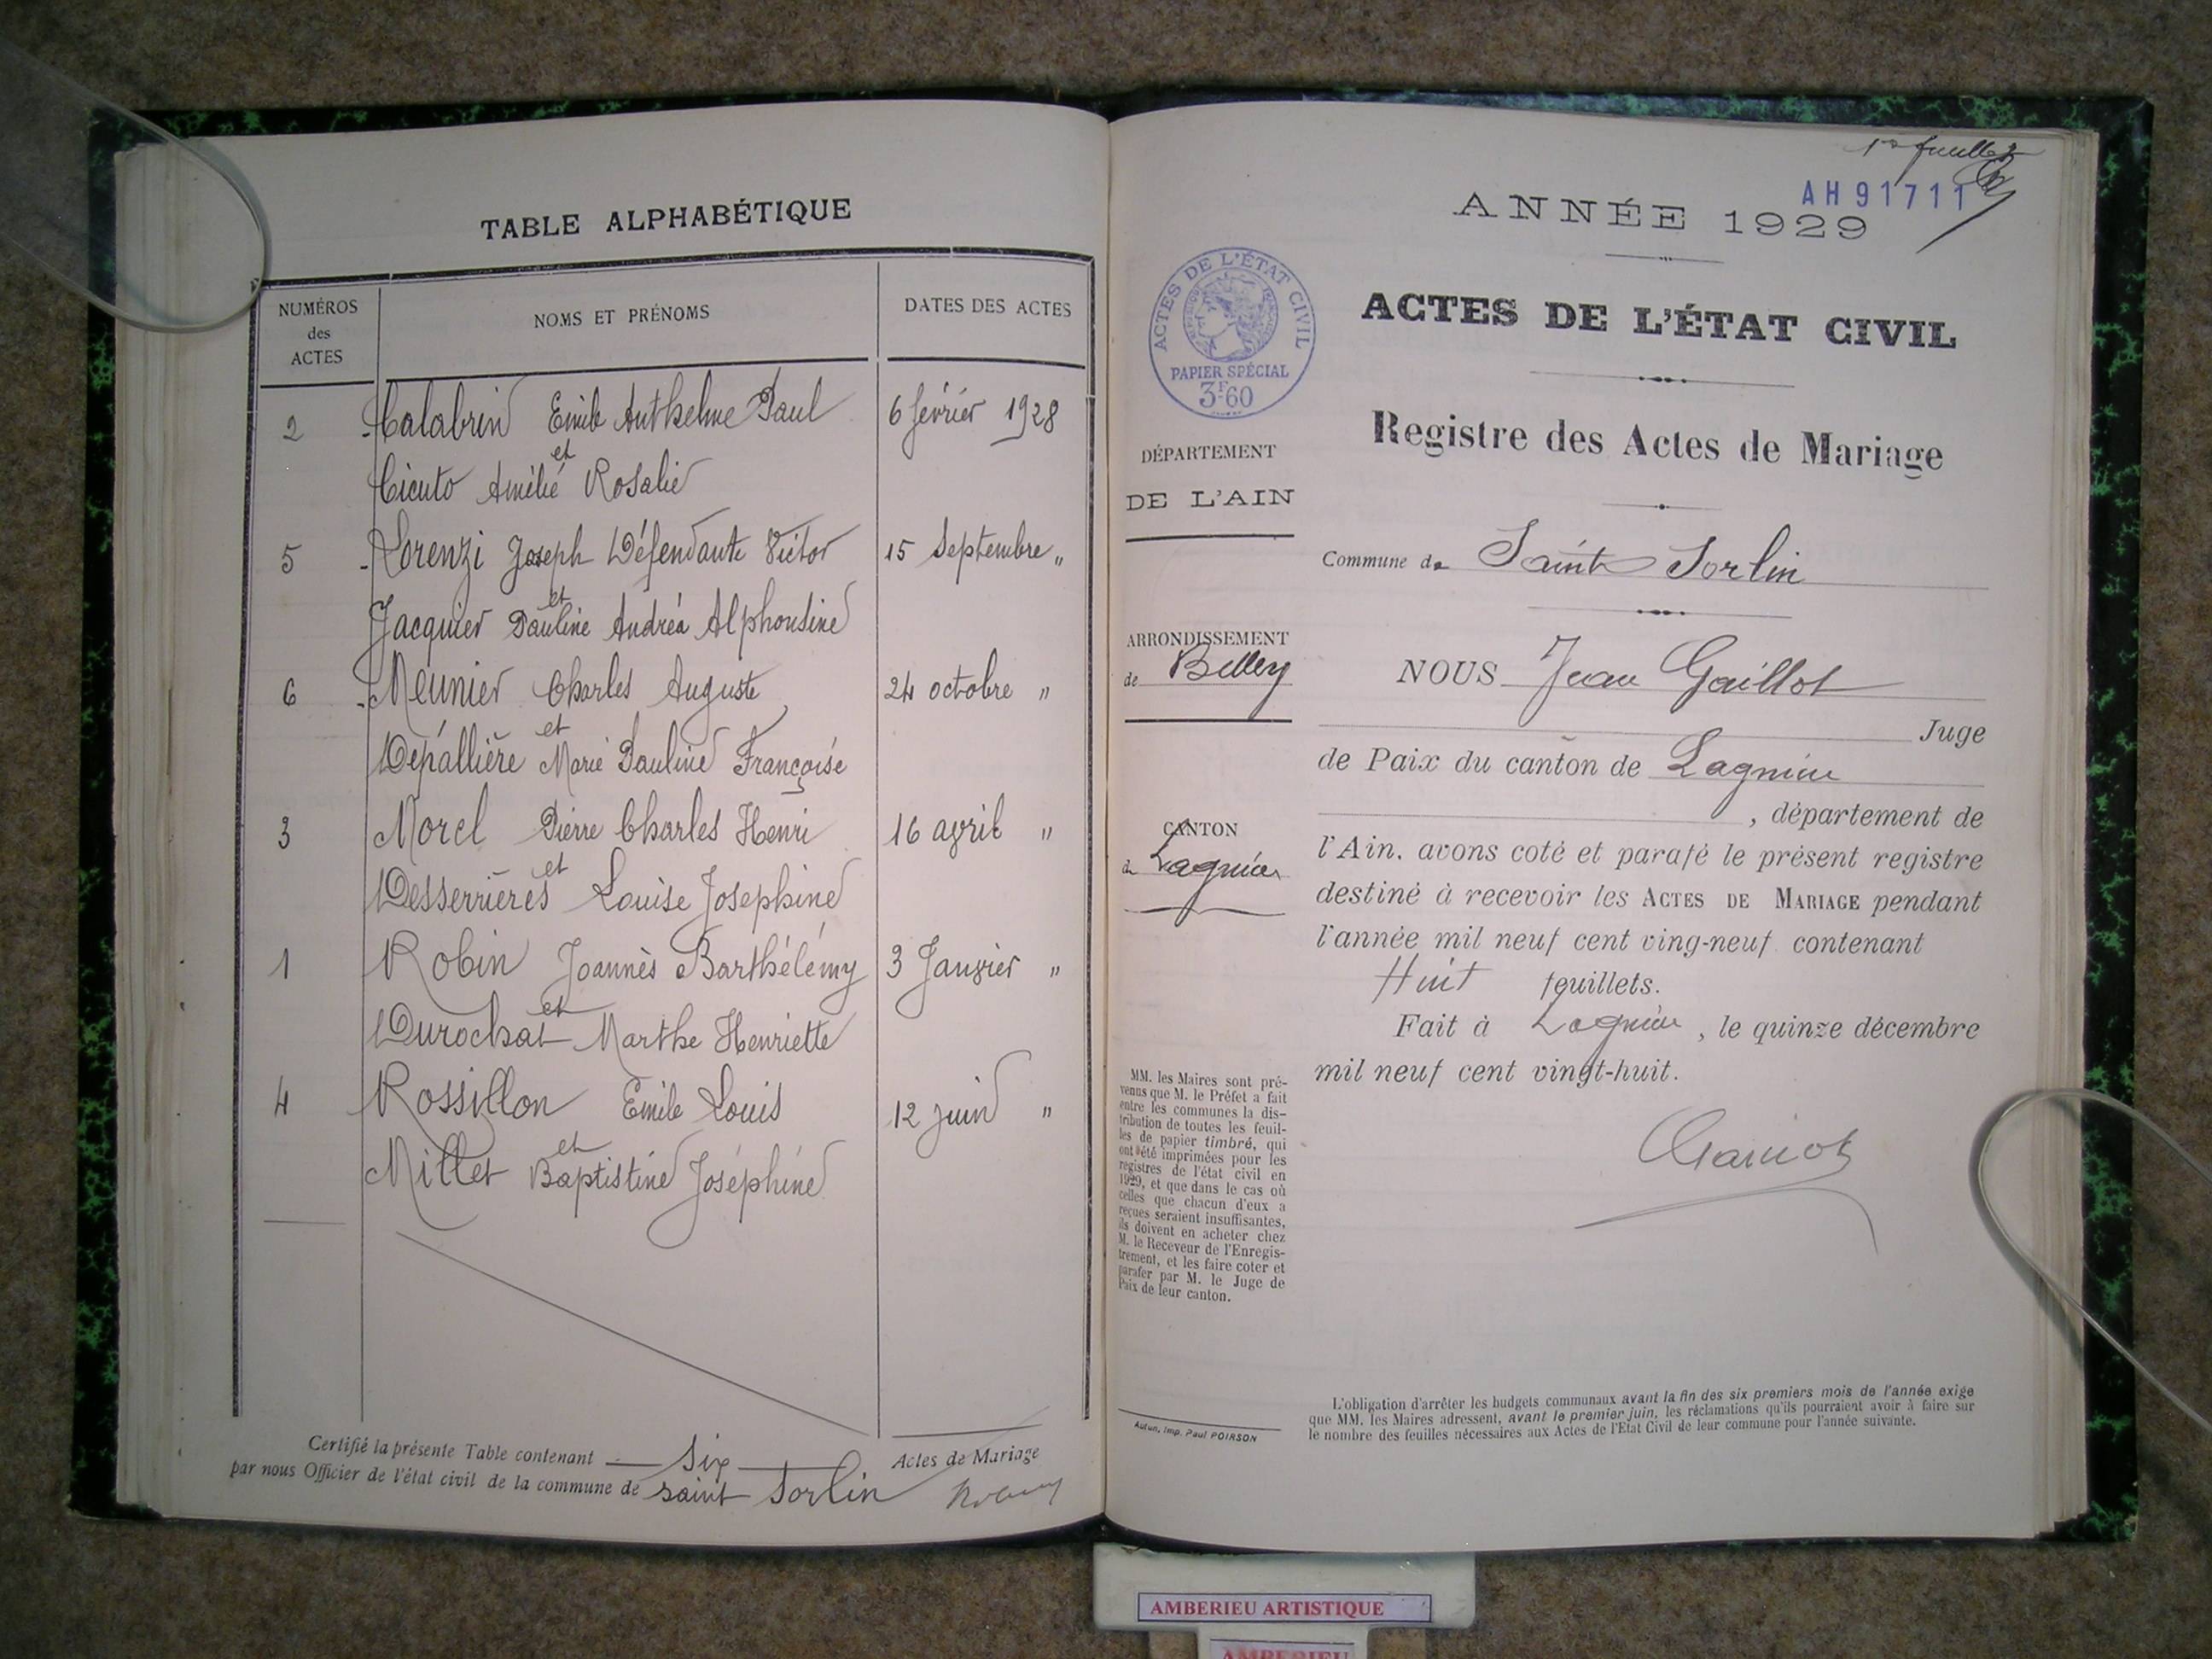 TABLE ALPHABÉTIQUE
NUMÉROS des ACTES
NOMS ET PRÉNOMS
DATES DES ACTES
2 Calabrin Emile Anthelme Paul 6 février 1928
et
Cicuto Amélie Rosalie
5 Lorenzi Joseph Défendante Victor 15 Septembre "
et
Jacquier Pauline Andréa Alphonsine
6 Meunier Charles Auguste 24 octobre "
et
Dépallière Marie Pauline Françoise
3 Morel Pierre Charles Henri 16 avril "
et
Desserrières Louise Josephine
1 Robin Joannès Barthélémy 3 Janvier "
et
Durochat Marthe Henriette
4 Rossillon Emile Louis 12 juin "
et
Millet Baptistine Joséphine
Certifié la présente Table contenant six Actes de Mariage
par nous Officier de l'état civil de la commune de saint Sorlin
1er feuillet
AH 91711
ANNÉE 1929
ACTES DE L'ÉTAT CIVIL
PAPIER SPÉCIAL
3F60
ACTES DE L'ÉTAT CIVIL
Registre des Actes de Mariage
DÉPARTEMENT
DE L'AIN
Commune de Saint Sorlin
ARRONDISSEMENT
de Belley
CANTON
de Lagnieu
NOUS Jean Gaillot
Juge
de Paix du canton de Lagnieu
, département de
l'Ain, avons coté et parafé le présent registre
destiné à recevoir les ACTES DE MARIAGE pendant
l'année mil neuf cent ving-neuf contenant
Huit feuillets.
Fait à Lagnieu, le quinze décembre
mil neuf cent vingt-huit.
MM. les Maires sont pré-
venus que M. le Préfet a fait
entre les communes la dis-
tribution de toutes les feuil-
les de papier timbré, qui
ont été imprimées pour les
registres de l'état civil en
1929, et que dans le cas où
celles que chacun d'eux a
reçues seraient insuffisantes,
ils doivent en acheter chez
M. le Receveur de l'Enregis-
trement, et les faire coter et
parafer par M. le Juge de
Paix de leur canton.
Autun, Imp. Paul POIRSON
L'obligation d'arrêter les budgets communaux avant la fin des six premiers mois de l'année exige
que MM. les Maires adressent, avant le premier juin, les réclamations qu'ils pourraient avoir à faire sur
le nombre des feuilles nécessaires aux Actes de l'Etat Civil de leur commune pour l'année suivante.
AMBERIEU ARTISTIQUE
AMBERIEU